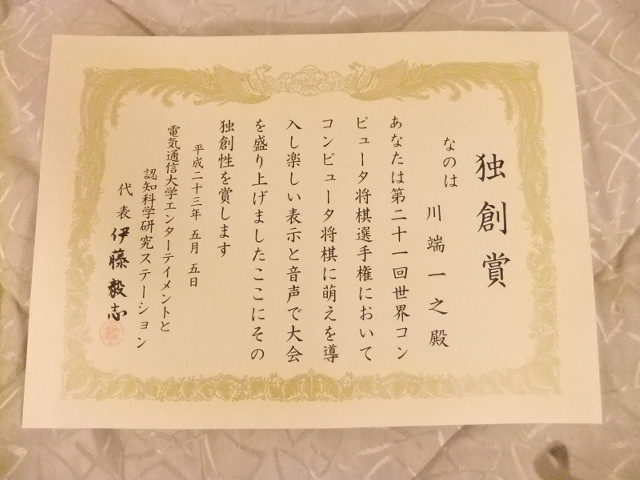 独創賞
なのは 川端一之殿
あなたは第二十一回世界コン
ピュータ将棋選手権において
コンピュータ将棋に萌えを導
入し楽しい表示と音声で大会
を盛り上げましたここにその
独創性を賞します
平成二十三年 五月 五日
電気通信大学エンターテイメントと
認知科学研究ステーション
代表 伊藤毅志